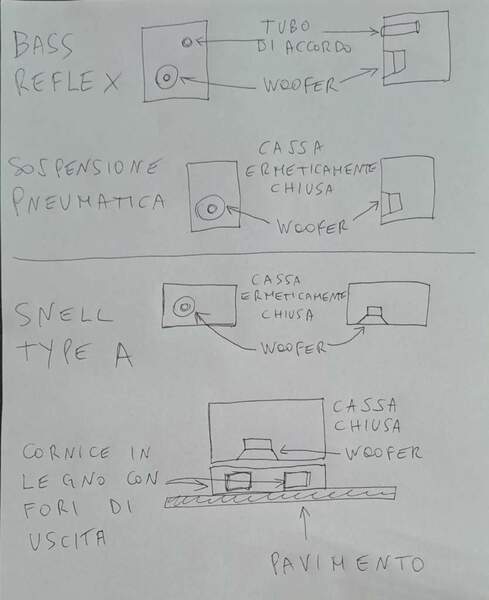 BASS
REFLEX
TUBO
DI ACCORDO
WOOFER
SOSPENSIONE
PNEUMATICA
CASSA
ERMETICAMENTE
CHIUSA
WOOFER
SNELL
TYPE A
CASSA
ERMETICAMENTE
CHIUSA
WOOFER
CASSA
CHIUSA
WOOFER
CORNICE IN
LEGNO CON
FORI DI
USCITA
PAVIMENTO